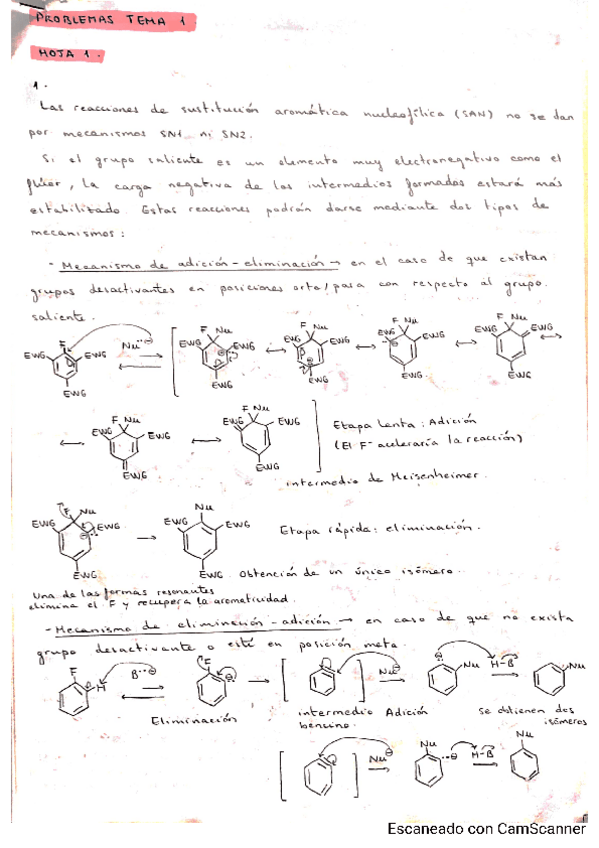 PROBLEMAS TEMA 1
HOJA 1.
1.
Las reacciones de sustitución aromática nucleofílica (SAN) no se dan
por mecanismos SN1 ni SN2.
Si el grupo saliente es un elemento muy electronegativo como el
flúor, la carga negativa de los intermedios formados estará más
estabilizado. Estas reacciones podrán darse mediante dos tipos de
mecanismos:
- Mecanismo de adición-eliminación → en el caso de que existan
grupos desactivantes en posiciones orto/para con respecto al grupo
saliente.
F Nu F Nu F Nu F Nu
F Nu:⊖ EWG EWG EWG EWG EWG EWG EWG EWG
EWG EWG
EWG EWG EWG EWG EWG
F Nu F Nu
EWG EWG EWG EWG
EWG EWG
Etapa lenta: Adición
(El F⁻ aceleraría la reacción)
intermedio de Meisenheimer.
F Nu Nu
EWG EWG EWG EWG
EWG EWG
Etapa rápida: eliminación.
Obtención de un único isómero.
Una de las formas resonantes
elimina el F y recupera la aromaticidad.
- Mecanismo de eliminación-adición → en caso de que no exista
grupo desactivante o esté en posición meta.
F H B:⊖ F Nu⊖ Nu H-B Nu
Eliminación
intermedio
bencino
Adición
se obtienen dos
isómeros
Nu⊖ Nu H-B Nu
Escaneado con CamScanner